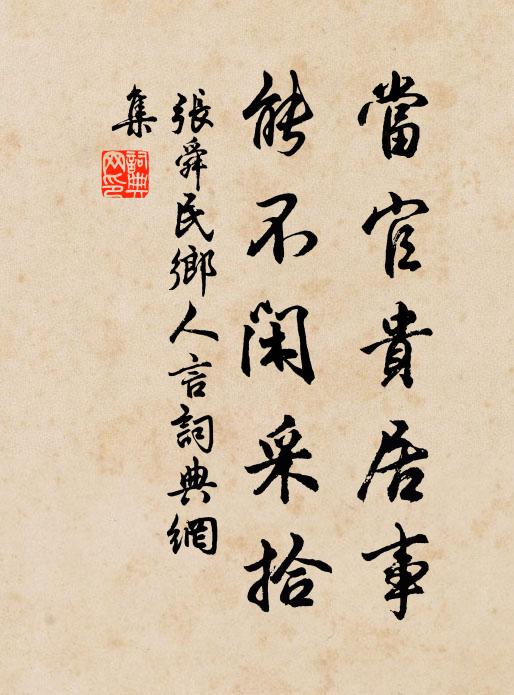 當官貴居事
能不閑采拾
張舜民鄉人言詞典網
集
詞典網印